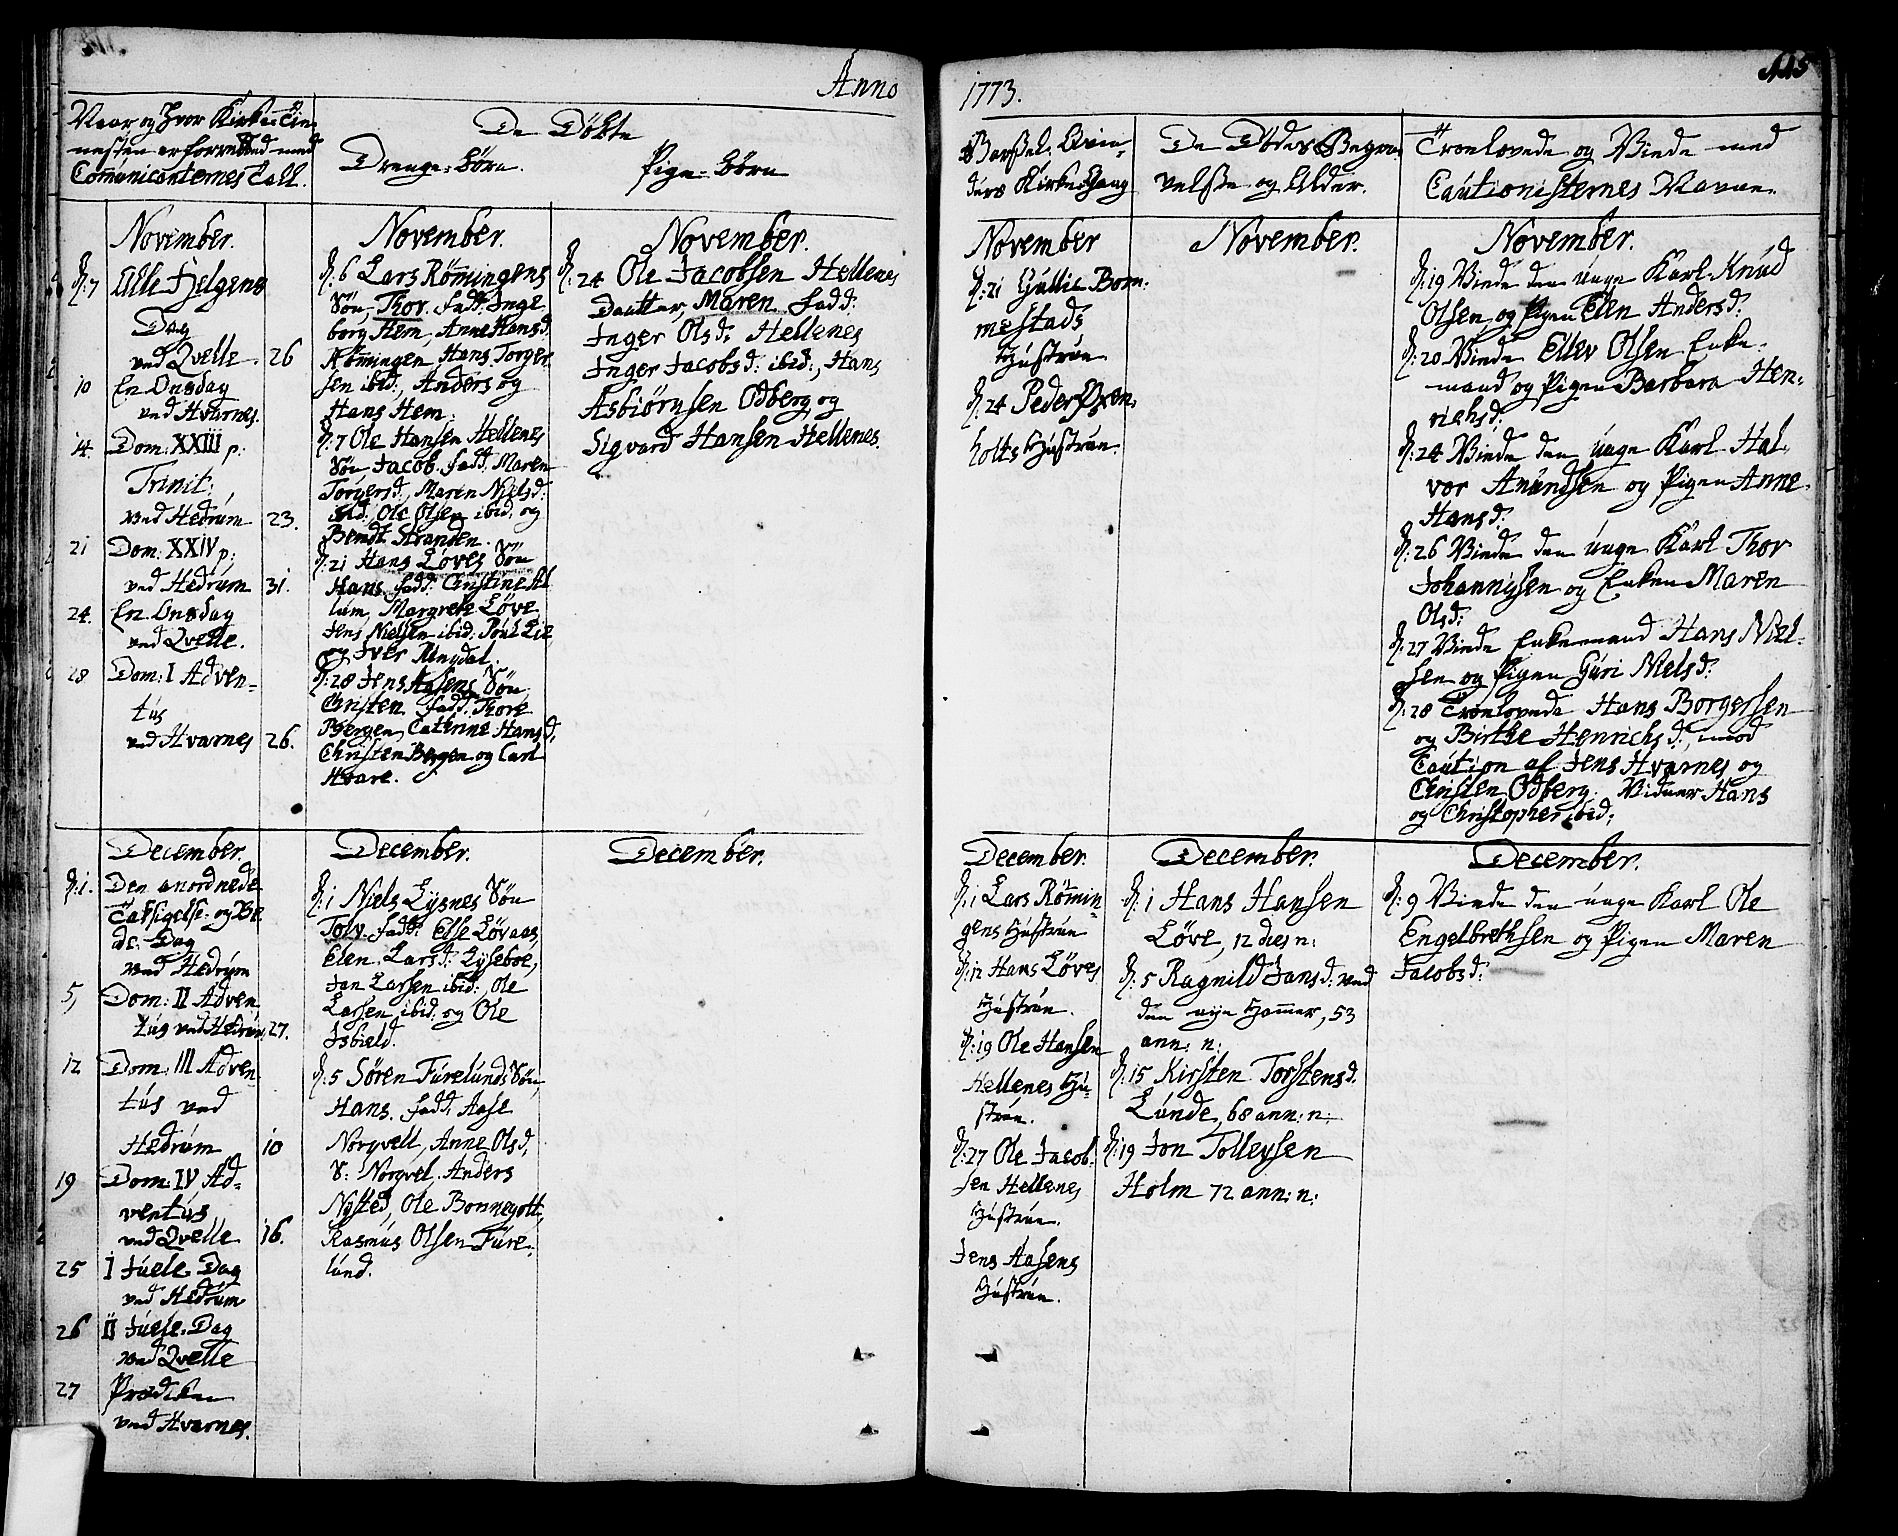 Anno
1773.
115
Naar og Hvor Kirke-Tie-
nesten er forretted med
Comunicanternes Tall.
De Døbte
Drenge-Børn.
Pige-Børn
Barsel-Qvin-
ders Kirkegang
De Dødes Begra-
velse og Alder.
Troelovede og Viede med
Cautionisternes Navne.
November.
D: 7 Alle Helgens
Dag
ved Qvelle. 26
10 En Onsdag
ved Hvarnes.
14. Dom: XXIII p:
Trinit:
ved Hedrum 23.
21 Dom: XXIV p:
ved Hedrum 31.
24. En Onsdag
ved Qvelle.
28 Dom: I Adven-
tus
ved Hvarnes 26.
November.
D: 6 Lars Römingens
Søn, Thor. fadd: Inge
borg Hem, Anne Hansd:
Römingen, Hans Torger
sen ibid:, Anders og
Hans Hem.
D: 7 Ole Hansen Hellenes
Søn Jacob. fadd: Maren
Torgersd:, Maren Nielsd:
ibid: Ole Olsen ibid: og
Bendt Stranden.
D: 21 Hans Löves Søn
Hans. fadd: Christine
lum, Margrete Löve
Jens Nielsen ibid: Poul Lie
og Iver Ringdal.
D: 28 Jens Aasens Søn
Christen. fadd: Thore
Bergen, Catrine Hansd:
Christen Bergen og Carl
Hvare.
November.
D: 24 Ole Jacobsen Hellenes
Daatter, Maren. fadd:
Inger Olsd: Hellenes
Inger Jacobsd: ibid:, Hans
Asbiörnsen Odberg og
Sigvard Hansen Hellenes.
November
D: 21 Gullic Bom-
mestads
Hustrue
D: 24 Peder Øxen-
holts Hustrue.
November.
November.
D: 19 Viede den unge Karl Knud
Olsen og Pigen Elen Andersd:
D: 20 Viede Ellev Olsen Enke-
mand og Pigen Barbara Hen-
richsd:
D: 24 Viede den unge Karl Hal-
vor Anundsen og Pigen Anne
Hansd:
D: 26 Viede den unge Karl Thor
Johannissen og Enken Maren
Olsd:
D: 27 Viede Enkemand Hans Niel-
sen og Pigen Guri Nielsd:
D: 28 Troelovede Hans Borgersen
og Birthe Henrichsd:, mod
Caution af Jens Hvarnes og
Christen Odberg. Vidner Hans
og Christopher ibid:
December.
D: 1. Den anordnede
Taksigelse- og Be
de-Dag
ved Hedrum
5, Dom: II Adven
tus ved Hedrum 27.
12 Dom: III Adven-
tus ved
Hedrum 10
19 Dom: IV Ad-
ventus
ved Qvelle 16.
25 I Juele-Dag
ved Hedrum
26 II Juele-Dag
ved Qvelle
27 Prædiken
ved Hvarnes.
December.
D: 1 Niels Lysnes Søn
Tolv. fadd: Else Lövaas,
Elen Larsd: Lyseboe,
Jan Larsen ibid:, Ole
Larsen ibid: og Ole
Isbield.
D: 5 Søren Furelunds Søn,
Hans. fadd: Aase
Norqvell, Anne Olsd:
S: Norqvel, Anders
Nysted, Ole Bonnegolt,
Rasmus Olsen Fure-
lund.
December.
December.
D: 1 Lars Römin-
gens Hustrue
D: 12 Hans Löves
Hustrue.
D: 19 Ole Hansen
Hellenes Hu-
strue.
D: 27 Ole Jacob-
sen Hellenes
Hustrue.
Jens Aasens
Hustrue.
December.
D: 1 Hans Hansen
Löve, 12 dies n:
D: 5 Ragnild Jansd: ved
den nye Hammer, 53
ann: n:
D: 15 Kirsten Torstensd.
Lunde, 68 ann: n:
D: 19 Jon Tollevsen
Holm 72 ann: n:
December.
D: 9 Viede den unge Karl Ole
Engelbrethsen og Pigen Maren
Jacobsd: